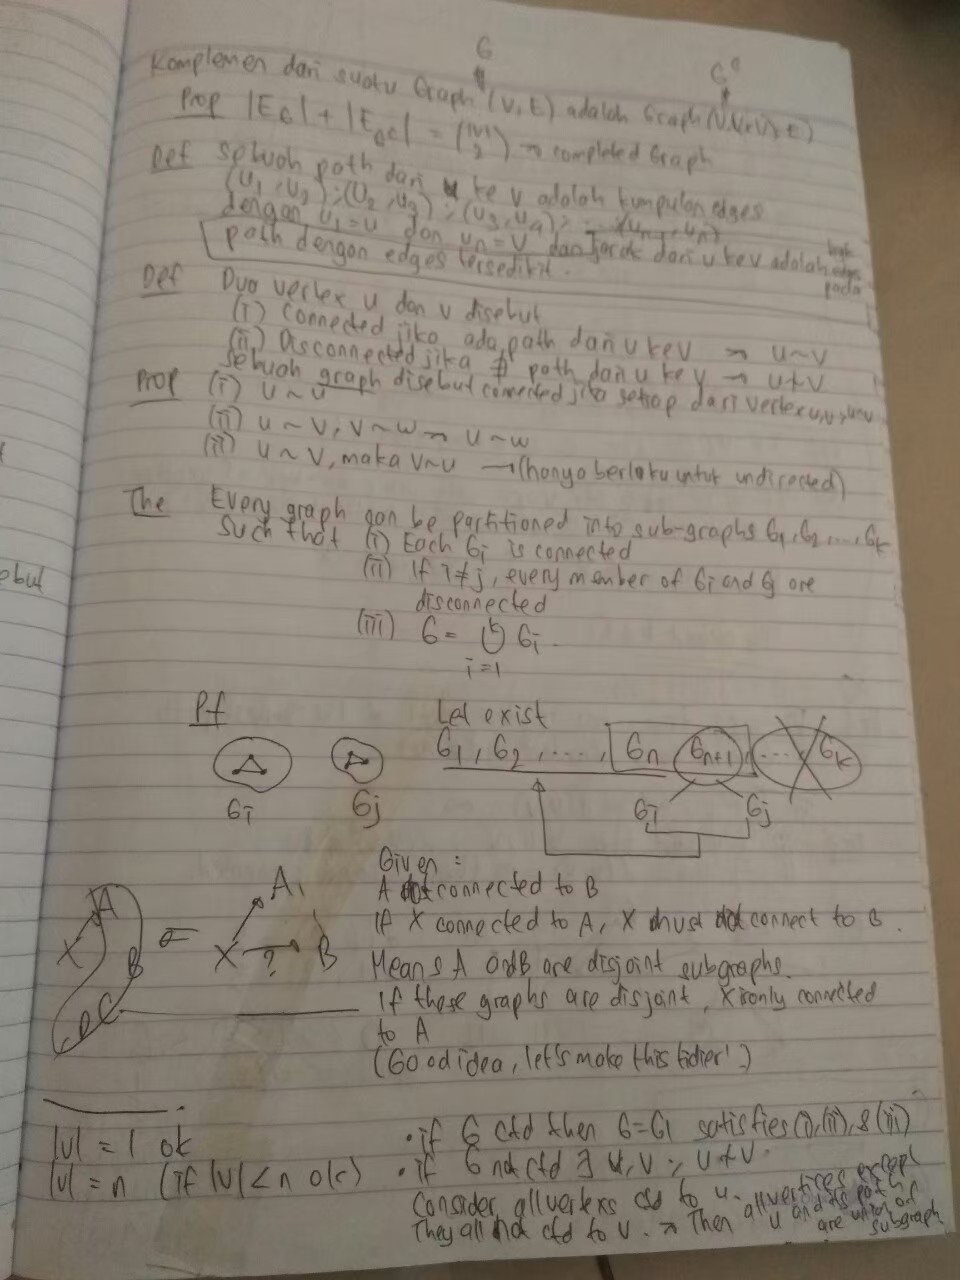 G
G^c
Komplemen dari suatu Graph (V, E) adalah Graph
Prop |E_G| + |E_{G^c}| = (|V| 2) → completed Graph
Def Sebuah path dari u ke v adalah kumpulan edges
(u_1, u_2); (u_2, u_3); (u_3, u_4); ...; (u_{n-1}, u_n)
dengan u_1 = u dan u_n = v dan Jarak dari u ke v adalah
path dengan edges tersedikit.
edges
pada
Def Dua vertex u dan v disebut
(i) Connected jika ada path dari u ke v → u ~ v
(ii) Disconnected jika ∄ path dari u ke v → u ≁ v
Sebuah graph disebut connected jika setiap dari vertex u, v, u~v
Prop (i) u ~ u
(ii) u ~ v, v ~ w → u ~ w
(iii) u ~ v, maka v ~ u → (hanya berlaku untuk undirected)
The Every graph can be partitioned into sub-graphs G_1, G_2, ..., G_k
Such that (i) Each G_i is connected
(ii) If i ≠ j, every member of G_i and G_j are
disconnected
(iii) G = ⋃ G_i.
k
i = 1
Pf
Let exist
G_1, G_2, ...., G_n G_{n+1}, ... G_k
G_i G_j
G_i G_j
Given :
A connected to B
If X connected to A, X must connect to B.
Means A and B are disjoint subgraphs.
If these graphs are disjoint, X is only connected
to A
(Good idea, let's make this tidier!)
A
X
B
C
A,
X → B
?
|V| = 1 ok
|V| = n (if |V| < n ok)
• if G ctd then G = G_1 satisfies (i), (ii), & (iii)
• if G not ctd ∃ u, v ; u ≁ v.
Consider all vertexs ctd to u.
They all not ctd to v. → Then all vertices except
u and its path
are union of
subgraph